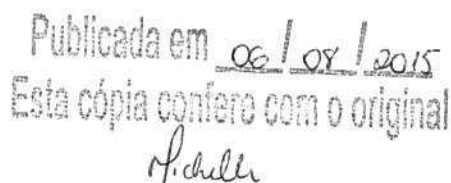 Publicada em 06/08/2015
Esta cópia confere com o original
Michelle